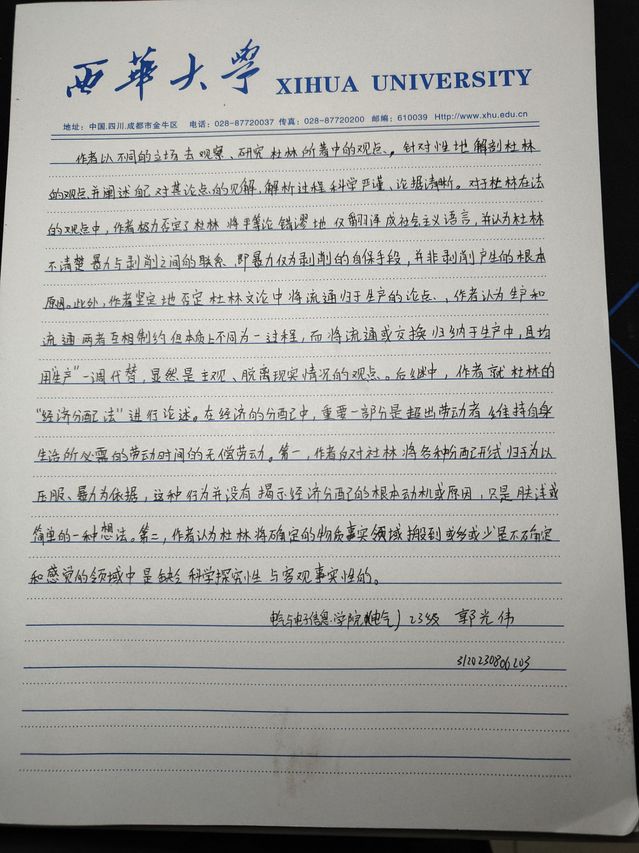 西华大学 XIHUA UNIVERSITY
地址：中国.四川.成都市金牛区 电话：028-87720037 传真：028-87720200 邮编：610039 Http://www.xhu.edu.cn
作者以不同的立场去观察、研究杜林所著中的观点，针对性地解剖杜林
的观点并阐述自己对其论点的见解，解析过程科学严谨、论据清晰。对于杜林在法
的观点中，作者极力否定了杜林将平等论错谬地仅翻译成社会主义语言，并认为杜林
不清楚暴力与剥削之间的联系，即暴力仅为剥削的自保手段，并非剥削产生的根本
原因。此外，作者坚定地否定杜林文论中将流通归于生产的论点，作者认为生产和
流通两者互相制约但本质上不同为一过程，而将流通或交换归纳于生产中，且均
用"生产"一词代替，显然是主观、脱离现实情况的观点。后继中，作者就杜林的
"经济分配法"进行论述。在经济的分配中，重要一部分是超出劳动者维持自身
生活所必需的劳动时间的无偿劳动。第一，作者反对杜林将各种分配形式归于为以
压服、暴力为依据，这种行为并没有揭示经济分配的根本动机或原因，只是肤浅或
简单的一种想法。第二，作者认为杜林将确定的物质事实领域搬到或多或少是不确定
和感觉的领域中是缺乏科学探究性与客观事实性的。
电气与电子信息学院(电气) 23级 郭光伟
3120230806203